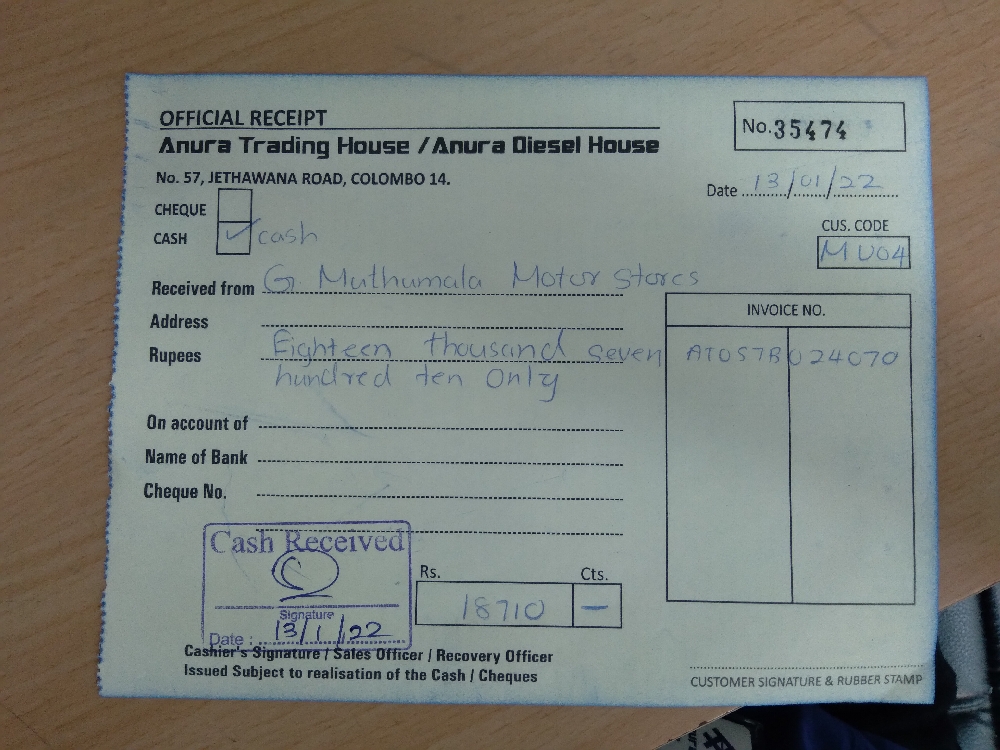 OFFICIAL RECEIPT
Anura Trading House / Anura Diesel House
No. 35474
No. 57, JETHAWANA ROAD, COLOMBO 14.
Date 13/01/22
CHEQUE
CASH ✓ cash
CUS. CODE
MU04
Received from G. Muthumala Motor Stores
Address
INVOICE NO.
Rupees Eighteen thousand seven
hundred ten Only
ATOS7B024070
On account of
Name of Bank
Cheque No.
Cash Received
Signature
Date : 13/1/22
Rs. Cts.
18710 —
Cashier's Signature / Sales Officer / Recovery Officer
Issued Subject to realisation of the Cash / Cheques
CUSTOMER SIGNATURE & RUBBER STAMP